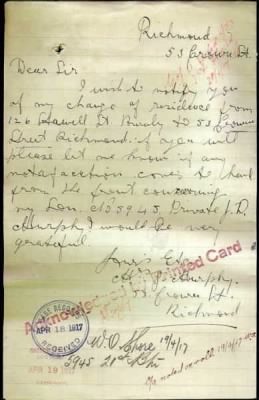 Richmond
53 Crown St.
Dear Sir
I wish to notify you
of my change of residence from
126 Stawell St Burnly to 53 Crown
Street Richmond. if you will
please let me know if any
notafacation comes to hand
from the front concerning
my Son. No 5945 Private J.D.
Murphy I would be very
grateful.
Yours Etc
Murphy
53 Crown St.
Richmond
Acknowledged by Printed Card
BASE RECORDS
APR 18 1917
RECEIVED
APR 19 1917
W.O. 19/4/17
5945 21st Btn
noted on roll 19/4/17